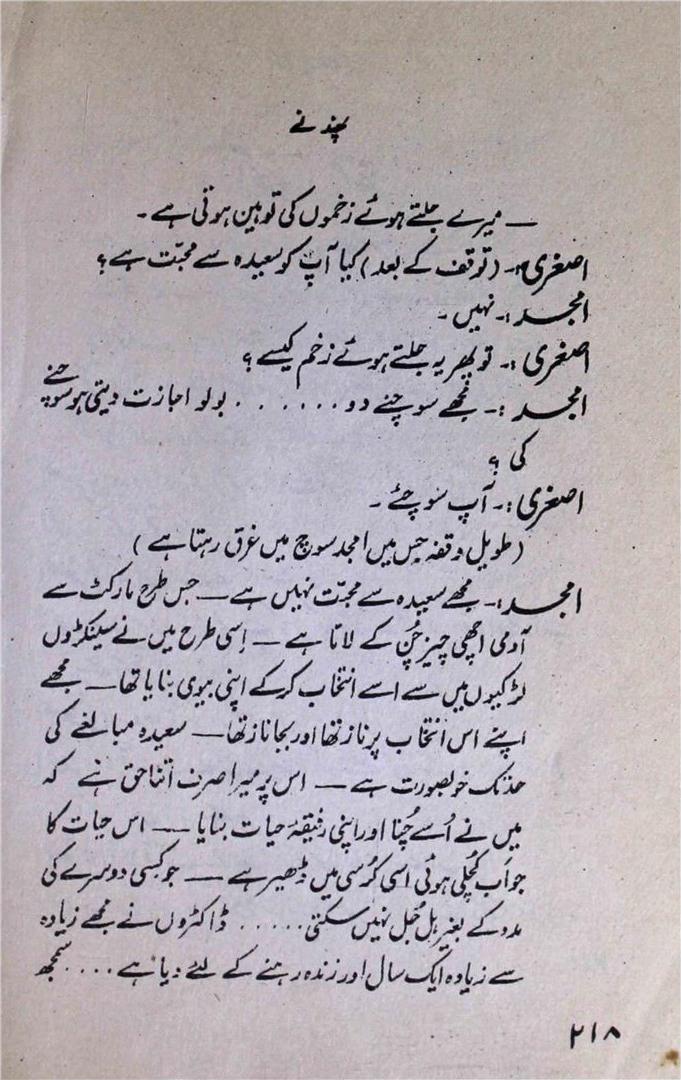 پھندنے
— میرے جلتے ہوئے زخموں کی توہین ہوتی ہے۔
اصغری :۔ (توقف کے بعد) کیا آپ کو سعیدہ سے محبّت ہے؟
امجد :۔ نہیں۔
اصغری :۔ تو پھر یہ جلتے ہوئے زخم کیسے؟
امجد :۔ مجھے سوچنے دو . . . . . . . بولو اجازت دیتی ہو سوچنے
کی؟
اصغری :۔ آپ سوچئے۔
(طویل وقفہ جس میں امجد سوچ میں غرق رہتا ہے)
امجد :۔ مجھے سعیدہ سے محبّت نہیں ہے — جس طرح مارکٹ سے
آدمی اچھی چیز چُن کے لاتا ہے — اِسی طرح میں نے سینکڑوں
لڑکیوں میں سے اسے انتخاب کرکے اپنی بیوی بنایا تھا — مجھے
اپنے اس انتخاب پر ناز تھا اور بجا ناز تھا — سعیدہ مبالغے کی
حد تک خوبصورت ہے — اس پر میرا صرف اتنا حق ہے کہ
میں نے اُسے چُنا اور اپنی رفیقۂ حیات بنایا — اس حیات کا
جو اَب کُچلی ہوئی اسی کُرسی میں ڈھیر ہے — جو کسی دوسرے کی
مدد کے بغیر ہل جُل نہیں سکتی . . . . . ڈاکٹروں نے مجھے زیادہ
سے زیادہ ایک سال اور زندہ رہنے کے لئے دیا ہے . . . . سمجھ
۲۱۸